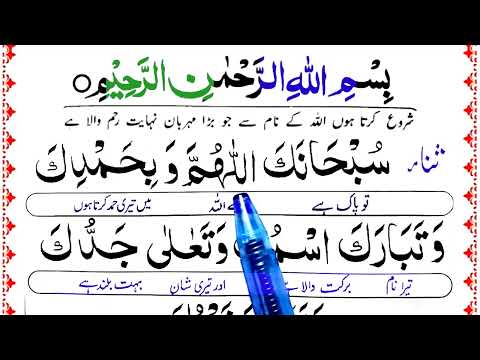 بِسْمِ اللهِ الرَّحْمٰنِ الرَّحِيْمِ
شروع کرتا ہوں اللہ کے نام سے جو بڑا مہربان نہایت رحم والا ہے
ثناء سُبْحَانَكَ اللّٰهُمَّ وَ بِحَمْدِكَ
تو پاک ہے اللہ میں تیری حمد کرتا ہوں
وَتَبَارَكَ وَتَعَالٰى جَدُّكَ
تیرا نام برکت والا اور تیری شان بہت بلند ہے